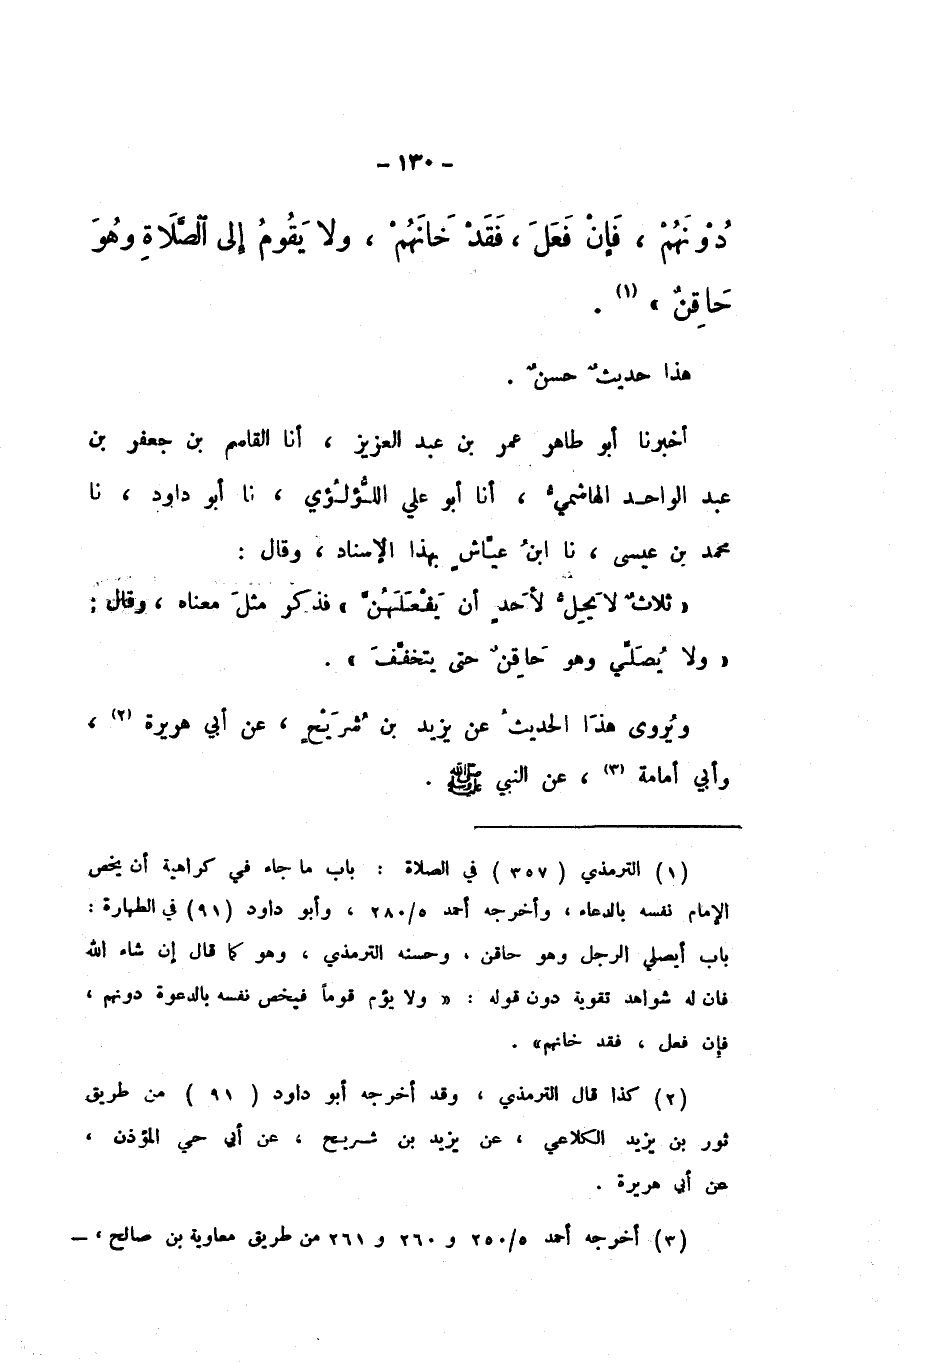 - ١٣٠ -
دُوْنَهُمْ ، فَإِنْ فَعَلَ ، فَقَدْ خَانَهُمْ ، ولا يَقُومُ إلى الصَّلَاةِ وهُوَ
حَاقِنٌ » (١) .
هذا حديثٌ حسنٌ .
أخبرنا أبو طاهر عمر بن عبد العزيز ، أنا القاسم بن جعفر بن
عبد الواحد الهاشميُّ ، أنا أبو علي اللُّؤلُؤي ، نا أبو داود ، نا
محمد بن عيسى ، نا ابنُ عيّاشٍ بهذا الإسناد ، وقال :
« ثلاثٌ لا يَحِلُّ لأَحدٍ أن يَفْعَلَهُنَّ » فذكر مثلَ معناه ، وقال :
« ولا يُصَلِّي وهو حَاقِنٌ حتى يتخفَّفَ » .
ويُروى هذَا الحديثُ عن يزيد بن شُرَيْحٍ ، عن أبي هريرة (٢) ،
وأبي أمامة (٣) ، عن النبي ﷺ .
(١) الترمذي ( ٣٥٧ ) في الصلاة : باب ما جاء في كراهية أن يخص
الإمام نفسه بالدعاء ، وأخرجه أحمد ٢٨٠/٥ ، وأبو داود (٩١) في الطهارة :
باب أيصلي الرجل وهو حاقن ، وحسنه الترمذي ، وهو كما قال إن شاء الله
فان له شواهد تقوية دون قوله : « ولا يؤم قوماً فيخص نفسه بالدعوة دونهم ،
فإن فعل ، فقد خانهم» .
(٢) كذا قال الترمذي ، وقد أخرجه أبو داود ( ٩١ ) من طريق
ثور بن يزيد الكلاعي ، عن يزيد بن شريح ، عن أبي حي المؤذن ،
عن أبي هريرة .
(٣) أخرجه أحمد ٢٥٠/٥ و ٢٦٠ و ٢٦١ من طريق معاوية بن صالح ، –